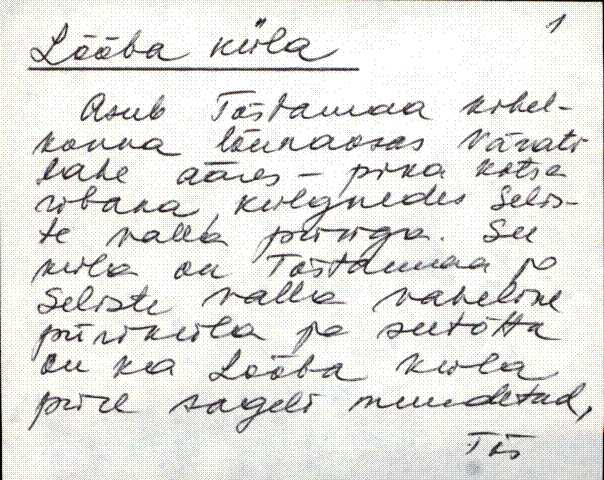 1
Lööba küla
Asub Tõstamaa kihel-
konna lõunaosas Värati
lahe ääres – pika kitsa
ribana, külgnedes Selis-
te valla piiriga. See
küla on Tõstamaa ja
Seliste valla vaheline
piiriküla ja seetõttu
on ka Lööba küla
piire sageli muudetud,
Tõs